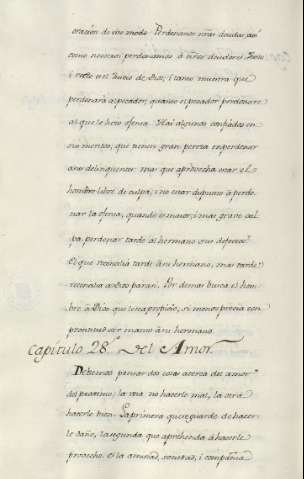 oracion de este modo. Perdonanos nras deudas, asi
como nosotros perdonamos à nros deudores. Justo
i recto es el juicio de Dios; i tanto muestra que
perdonarà al pecador, quanto el pecador perdonare
al que le hizo ofensa. Hai algunos confiados en
sus meritos, que tienen gran pereza en perdonar
a los delinquentes: mas que aprovecha estar el
hombre libre de culpa, i no estar dispuesto à perdo-
nar la ofensa, quando es maior, i mas grave cul-
pa perdonar tarde al hermano sus defectos?
El que reconcilia tarde à su hermano, mas tarde
reconcilia a Dios para si. Por demas busca el hom-
bre à Dios que le sea propicio, si menosprecia con
prontitud ser manso à su hermano.
Capitulo 28. Del Amor.
Debemos pensar dos cosas acerca del amor
del proximo; la una no hacerle mal, la otra
hacerle bien. La primera que se guarde de hacer-
le daño, la segunda que aprehenda à hacerle
provecho. Es la amistad, i compañia